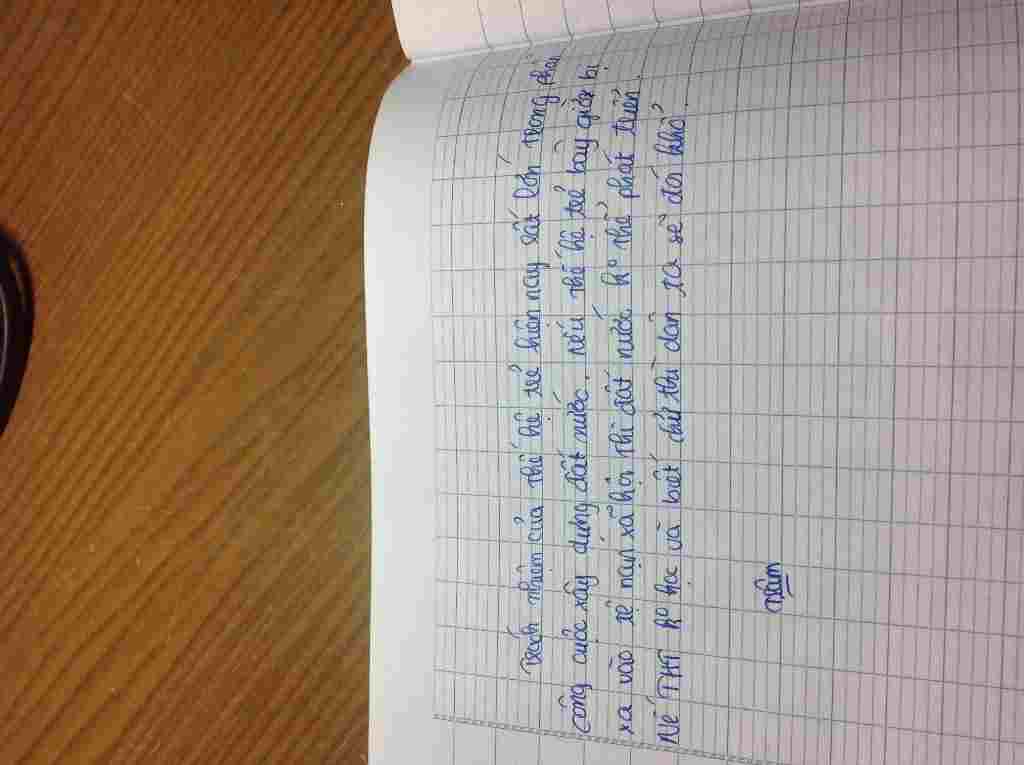 Trách nhiệm của thế hệ trẻ hiện nay rất lớn trong phải
công cuộc xây dựng đất nước. nếu thế hệ trẻ bây giờ bị
xa vào tệ nạn xã hội thì đất nước ko thể phát triển.
Nế THT ko học và biết chữ thì dân ta sẽ đói khổ.